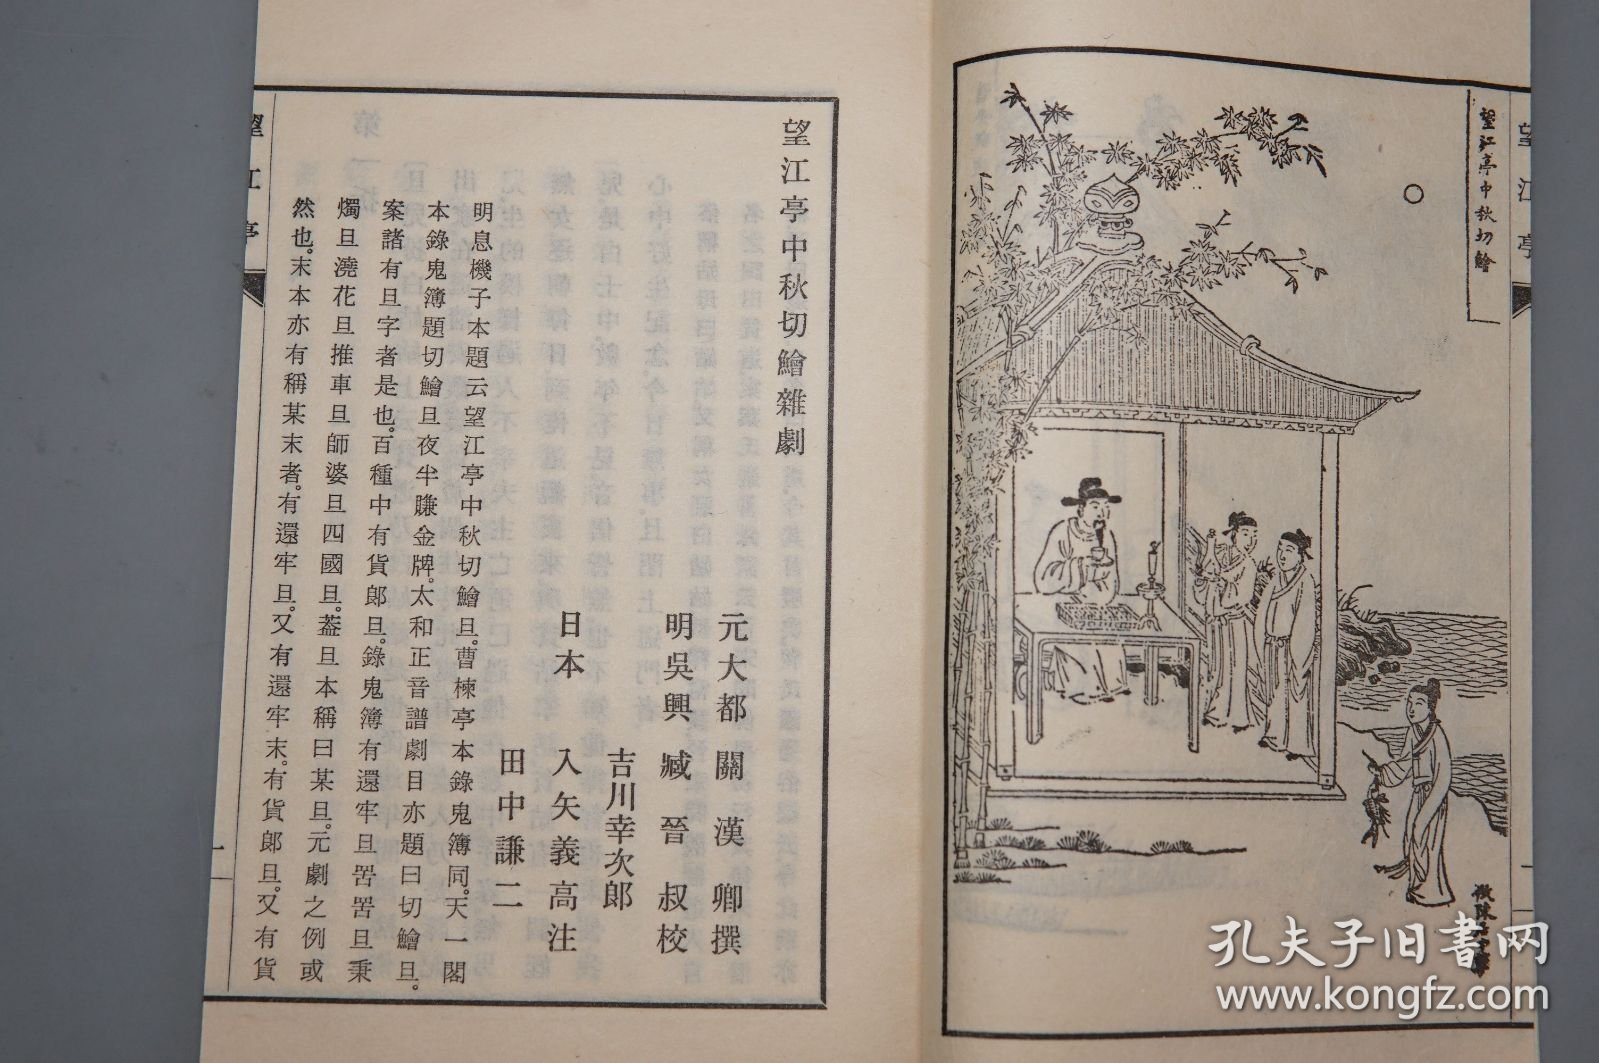 望江亭
望江亭中秋切鱠
望江亭中秋切鱠雜劇
元大都 關漢卿撰
明吳興 臧晉叔校
吉川幸次郎
日本 入矢義高注
田中謙二
明息機子本題云望江亭中秋切鱠旦。曹楝亭本錄鬼簿同。天一閣
本錄鬼簿題切鱠旦夜半賺金牌。太和正音譜劇目亦題曰切鱠旦。
案諸有旦字者是也。百種中有貨郎旦。錄鬼簿有還牢旦罟罟旦秉
燭旦澆花旦推車旦師婆旦四國旦。蓋旦本稱曰某旦。元劇之例或
然也。末本亦有稱某末者。有還牢旦。又有還牢末。有貨郎旦。又有貨
望江亭
一
孔夫子旧书网
www.kongfz.com